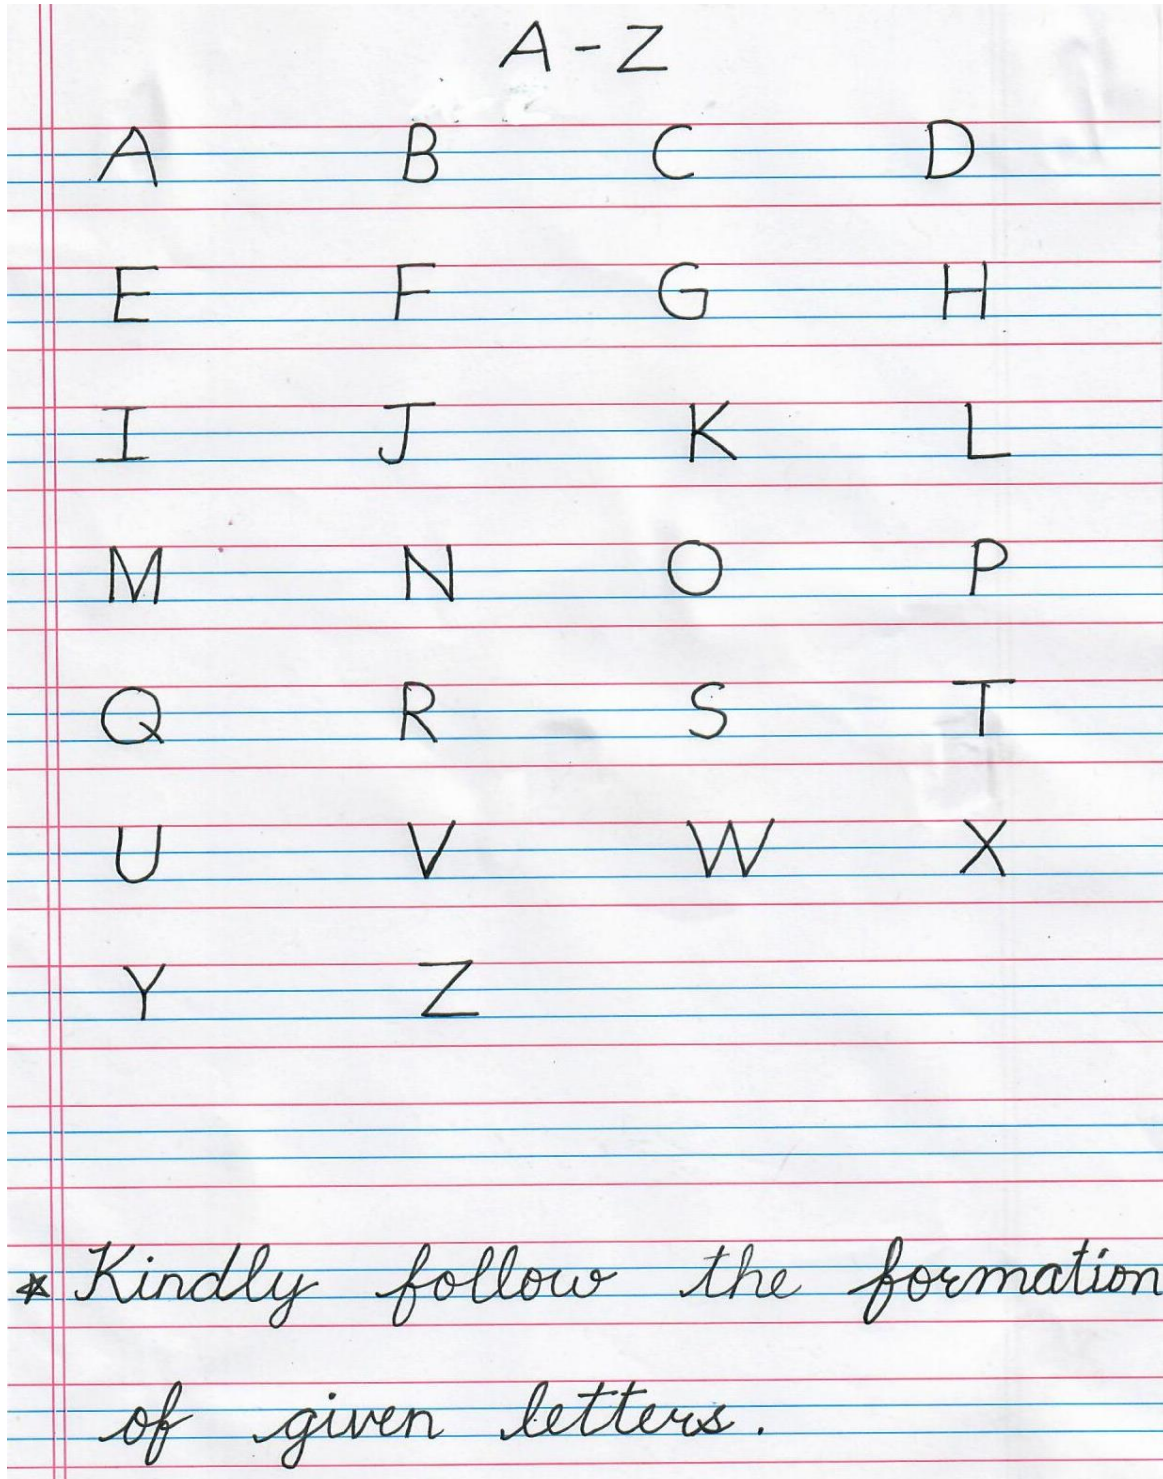 A-Z
A B C D
E F G H
I J K L
M N O P
Q R S T
U V W X
Y Z
* Kindly follow the formation
of given letters.